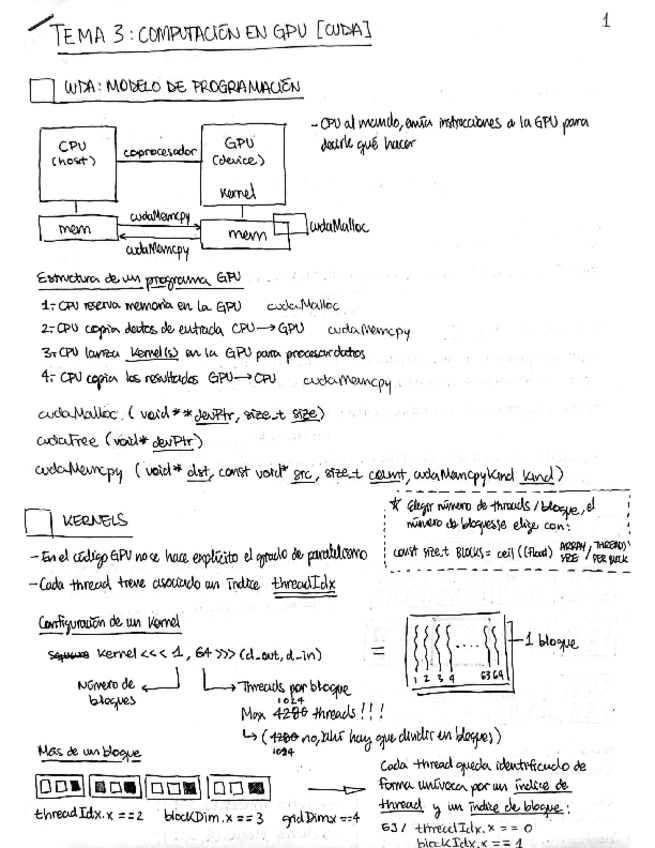 1
TEMA 3: COMPUTACIÓN EN GPU [CUDA]
CUDA: MODELO DE PROGRAMACIÓN
CPU
(host)
coprocesador
GPU
(device)
Kernel
- CPU al mando, envía instrucciones a la GPU para
decirle qué hacer
mem
cudaMemcpy
cudaMemcpy
mem
cudaMalloc
Estructura de un programa GPU
1.- CPU reserva memoria en la GPU cudaMalloc
2.- CPU copia datos de entrada CPU → GPU cudaMemcpy
3.- CPU lanza Kernel(s) en la GPU para procesar datos
4.- CPU copia los resultados GPU → CPU cudaMemcpy
cudaMalloc (void** devPtr, size_t size)
cudaFree (void* devPtr)
cudaMemcpy (void* dst, const void* src, size_t count, cudaMemcpyKind Kind)
KERNELS
* Elegir número de threads/bloque, el
número de bloques se elige con:
const size_t BLOCKS = ceil((float) ARRAY SIZE / THREADS PER BLOCK
- En el código GPU no se hace explícito el grado de paralelismo
- Cada thread tiene asociado un índice threadIdx
Configuración de un Kernel
Kernel <<< 1, 64 >>> (d_out, d_in)
=
1 2 3 4 63 64
1 bloque
Número de
bloques
Threads por bloque
1024
Max threads!!!
↳ ( no, ahí hay que dividir en bloques)
1024
Más de un bloque
threadIdx.x == 2 blockDim.x == 3 gridDim.x == 4
Cada thread queda identificado de
forma unívoca por un índice de
thread y un índice de bloque:
EJ/ threadIdx.x == 0
blockIdx.x == 1